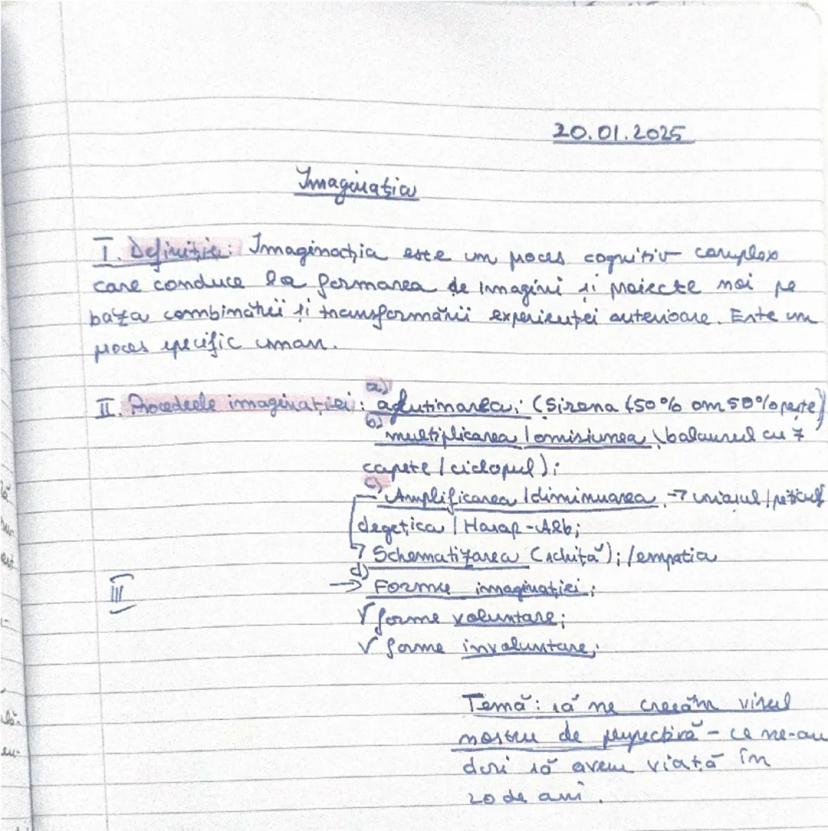 20.01.2025
Imaginația
I. Definiție: Imaginația este un proces cognitiv complex
care conduce la formarea de imagini și proiecte noi pe
baza combinării și transformării experienței anterioare. Este un
proces specific uman.
II. Procedeele imaginației: a) aglutinarea; (Sirena (50% om 50% pește)
b) multiplicarea / omisiunea (balaurul cu 7
capete / ciclopul);
c) Amplificarea / diminuarea → uriașul / piticul
degețica / Harap-Alb;
→ Schematizarea (schiță); /empatia
III d) → Forme imaginației:
√ forme voluntare;
√ forme involuntare;
Temă: să ne creeăm visul
nostru de perspectivă - ce ne-am
dori să avem viață în
20 de ani.